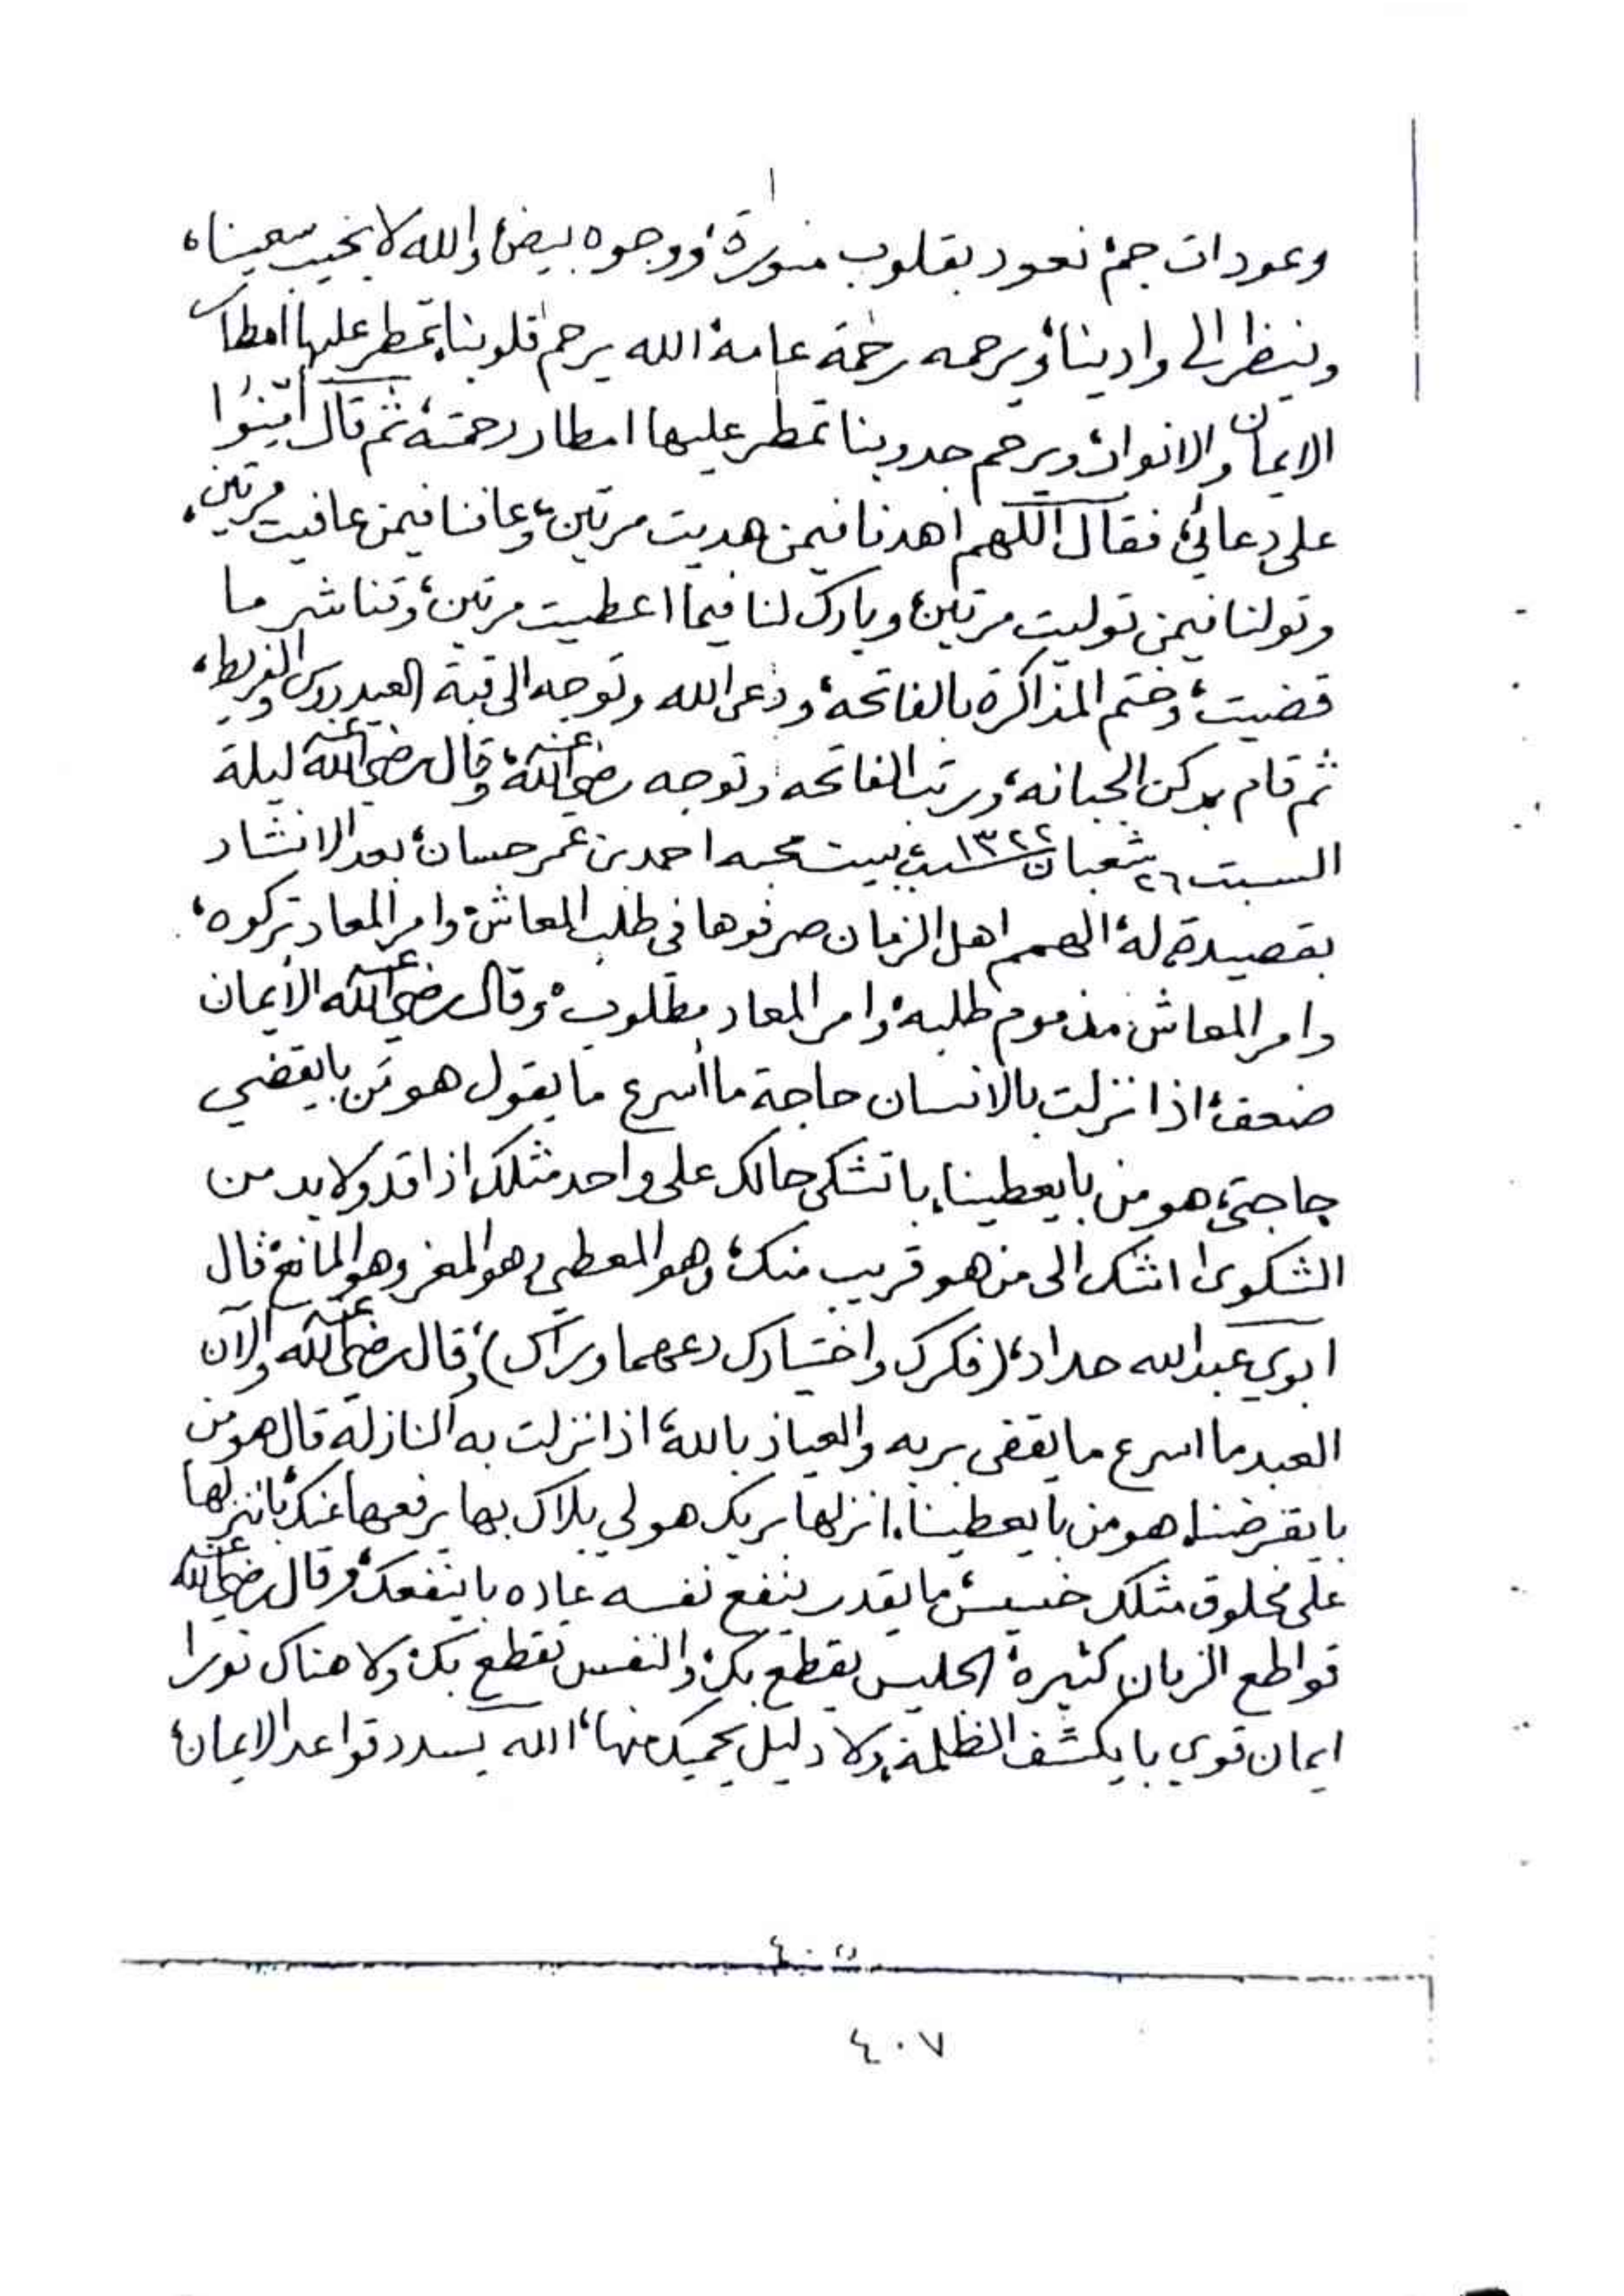 وعودات جم، نعود بقلوب منورة، ووجوه بيض، والله لا يخيب سعينا،
وينظر الى وادينا، ويرحمه رحمة عامة، الله يرحم قلوبنا، تمطر عليها امطار
الايمان والانوار، ويرحم جدوبنا تمطر عليها امطار رحمته، ثم قال أمّنوا
على دعائي، فقال اللهم اهدنا فيمن هديت مرتين، وعافنا فيمن عافيت مرتين،
وتولنا فيمن توليت مرتين، وبارك لنا فيما اعطيت مرتين، وقنا شر ما
قضيت، وختم المذاكرة بالفاتحة، ودعى الله وتوجه الى قبة العيدروس
ثم قام بركن الجبانه، ورتب الفاتحه وتوجه رضي الله عنه، وقال رضي الله عنه ليلة
السبت ٢٦ شعبان سنة ١٣٢٢ ببيت محبه احمد بن عمر حسان، بعد الانشاد
بقصيدة له، الهمم اهل الزمان صرفوها في طلب المعاش، وامر المعاد تركوه،
وامر المعاش مذموم طلبه، وامر المعاد مطلوب، وقال رضي الله عنه الأيمان
ضعف، اذا نزلت بالانسان حاجة ما أسرع ما يقول هو من بايقضي
حاجتي، هو من بايعطينا، با تشكي حالك على واحد مثلك، اذا قد ولا بد من
الشكوى اشك الى من هو قريب منك، وهو المعطي وهو وهو المانع، قال
ابوي عبدالله حداد، (فكرك واختيارك دعهما وراك)، وقال رضي الله عنه والآن
العبد ما اسرع ما يقفي بربه والعياذ بالله، اذا نزلت به النازلة قال هو من
بايقرضنا، هو من بايعطينا، انزلها بربك هو لي بلاك بها يرفعها عنك، باتنزلها
على مخلوق مثلك خسيس، ما يقدر ينفع نفسه عاده با ينفعك، وقال رضي الله عنه
قواطع الزمان كثيرة، الجليس يقطع بك، والنفس تقطع بك، ولا هناك نورا
ايمان قوي با يكشف الظلمة، ولا دليل يحميك منها، الله يسدد قواعد الايمان،
٤٠٥
٤٠٧